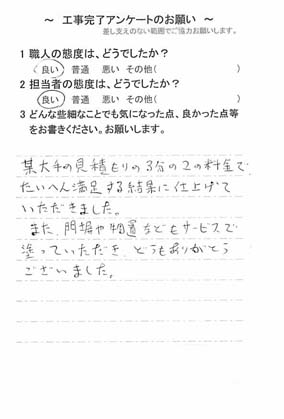 ～ 工事完了アンケートのお願い ～
差し支えのない範囲でご協力お願いします。
1 職人の態度は、どうでしたか？
（ 良い 普通 悪い その他（ ）
2 担当者の態度は、どうでしたか？
（ 良い 普通 悪い その他（ ）
3 どんな些細なことでも気になった点、良かった点等
をお書きください。お願いします。
某大手の見積もりの3分の2の料金で
たいへん満足する結果に仕上げて
いただきました。
また、門塀や物置などもサービスで
塗っていただき、どうもありがとう
ございました。